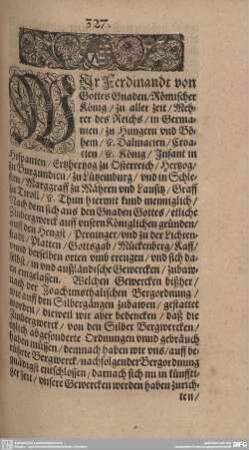 327.
WIr Ferdinandt von
Gottes Gnaden/Römischer
König/ zu aller zeit/ Meh-
rer des Reichs/ in Germa-
nien/ zu Hungern vnd Bö-
heim/ ꝛc. Dalmacien/ Croa-
cien/ ꝛc. König/ Infant in
Hispanien/ Ertzhertzog zu Osterreich/ Hertzog
zu Burgundien/ zu Lützemburg/ vnd in Schle-
sien/ Marggraff zu Mähren vnd Lausitz/ Graff
zu Tiroll/ ꝛc. Thun hiermit kund menniglich/
Nach dem sich aus den Gnaden Gottes/ etliche
Zubergwerck auff vnsern Königlichen gründen/
auff den Hengst/ Perninger/ vnd zu der Lichten-
stadt/ Platten/ Gottsgab/ Mückenberg/ Kaff/
vnd derselben orten vmb ereugen/ vnd sich da-
selbst/ in vnd ausländische Gewercken/ zubaw-
en eingelassen. Welchen Gewercken bißher/
nach der Joachimsthalischen Bergordnung/
wie auff den Silbergängen zubawen/ gestattet
worden/ dieweil wir aber bedencken/ daß die
Zubergwerck/ von den Silber Bergwercken/
abgesonderte Ordnungen vnnd gebräuch
haben müssen/ demnach haben wir vns/ auff be-
rührte Bergwerck/nachfolgender Bergordnung
gnädigst entschlossen/ darnach sich nu in künffti-
ger zeit/ vnsere Gewercken werden haben zurich-
ten/